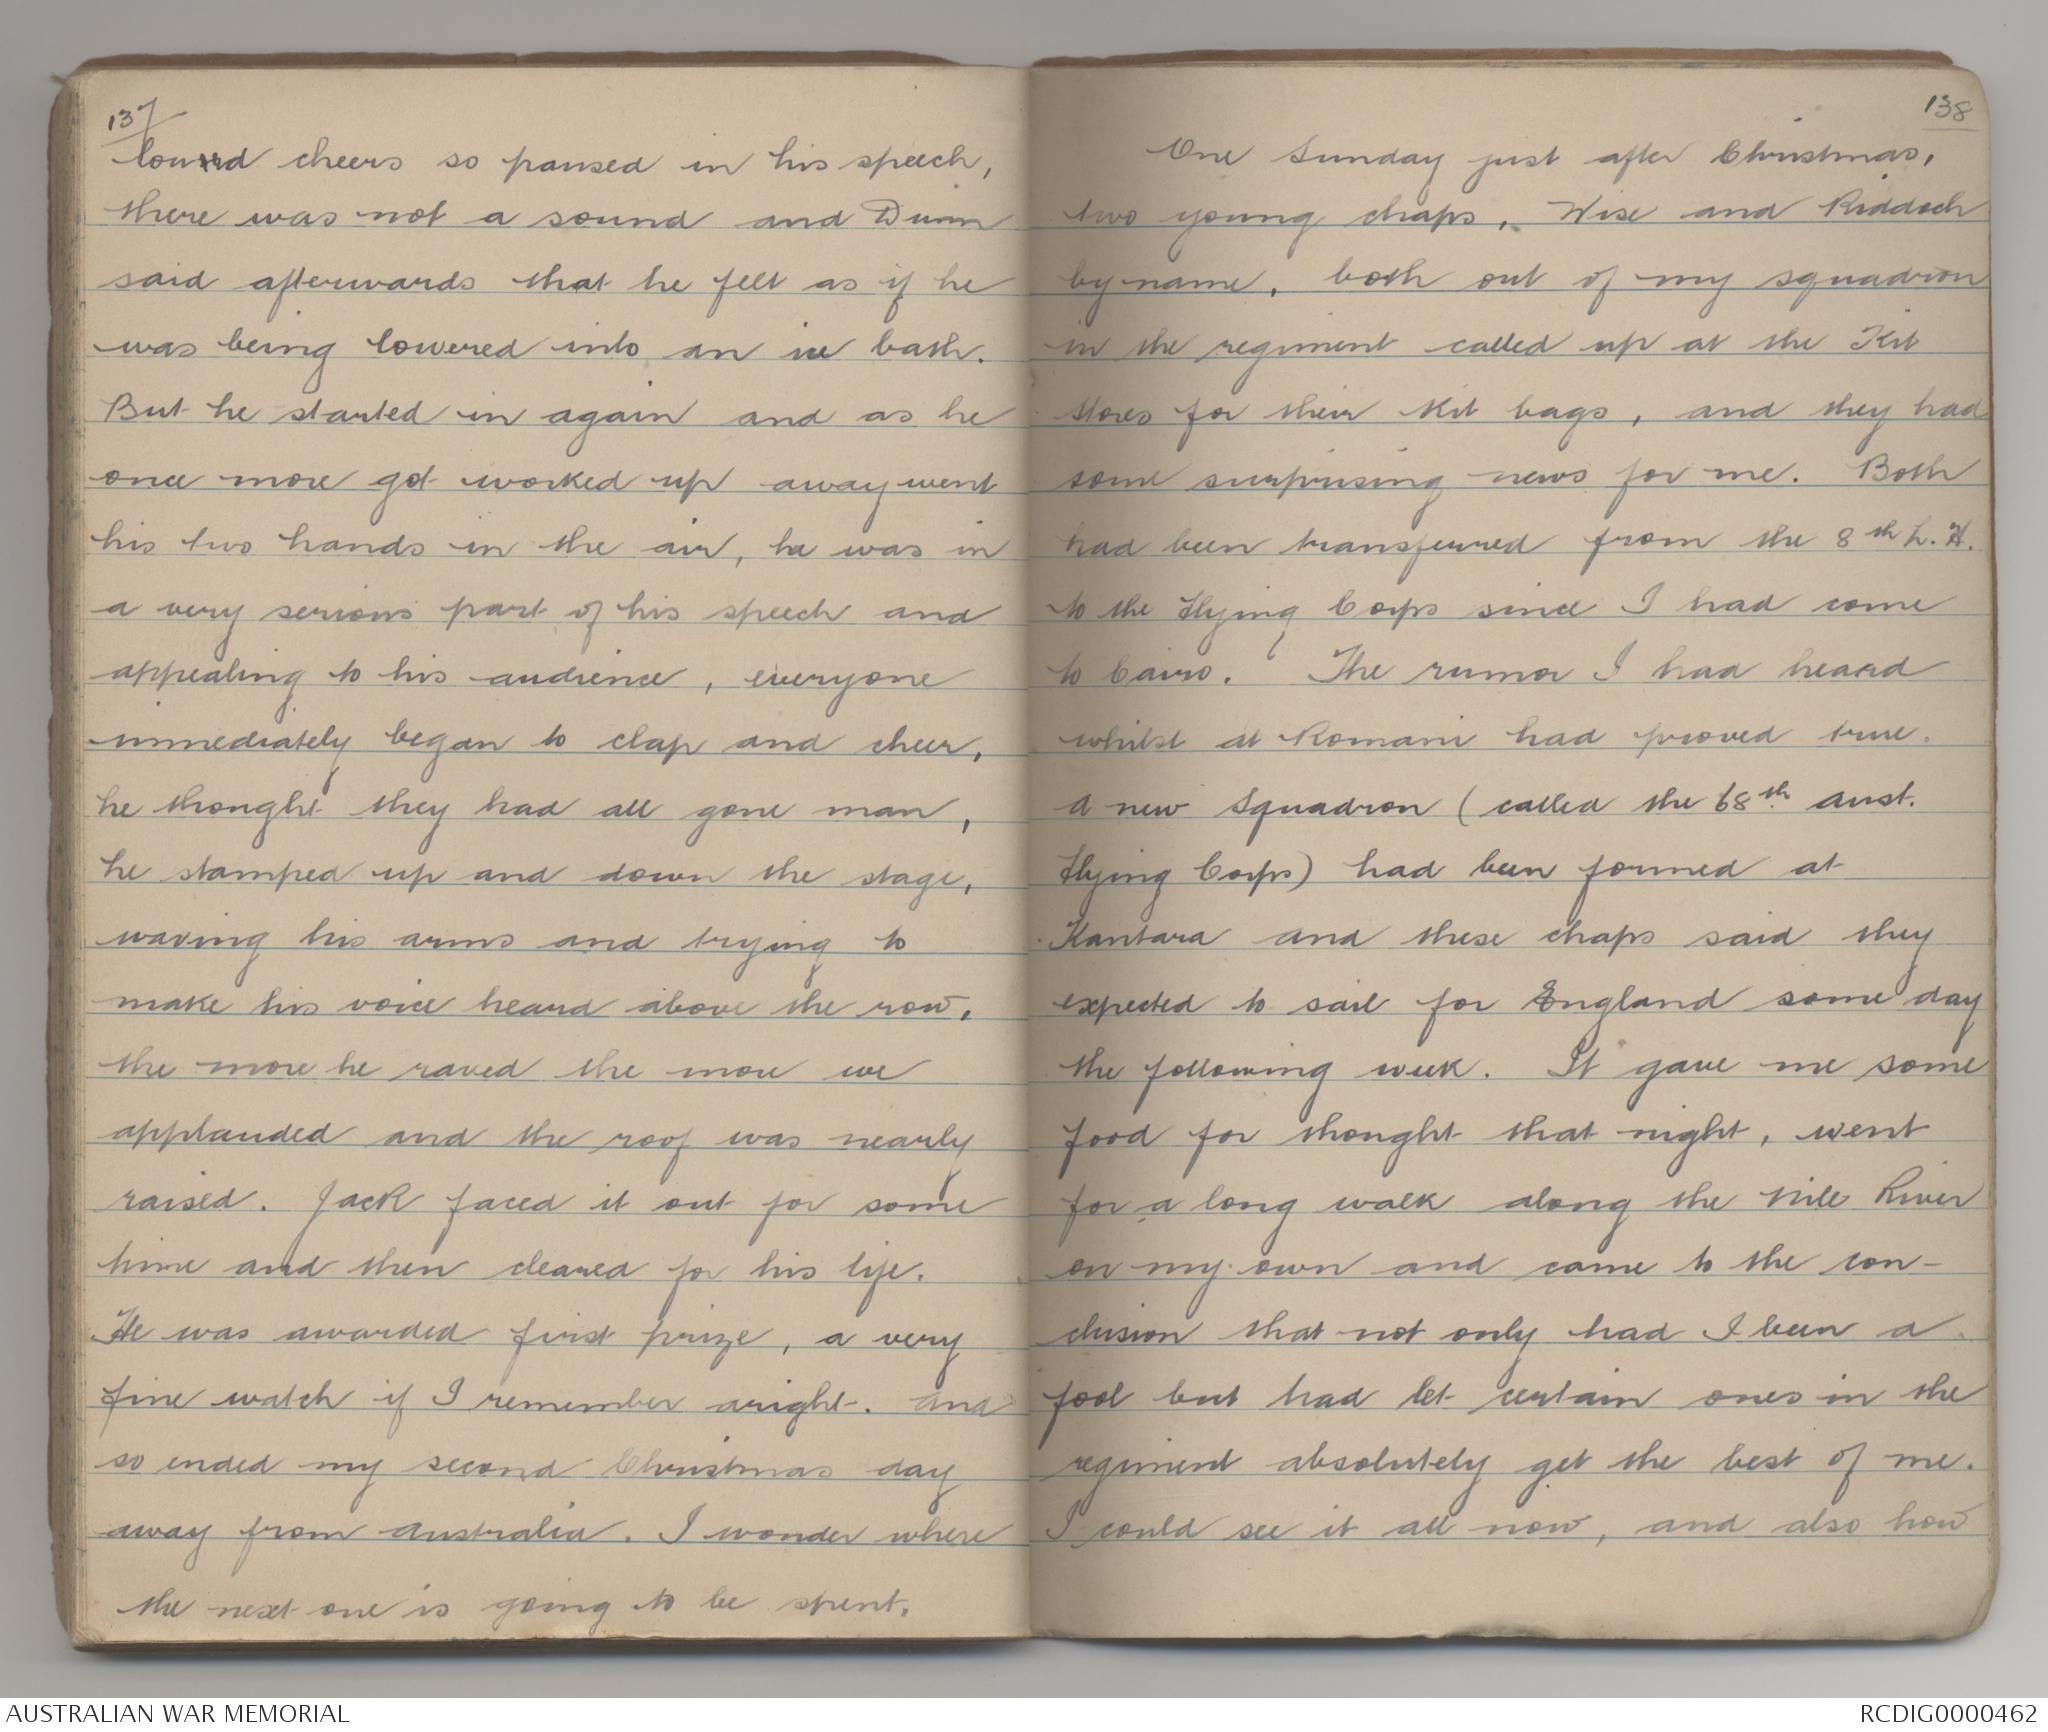 137
loud cheers so paused in his speech,
there was not a sound and Dunn
said afterwards that he felt as if he
was being lowered into an ice bath.
But he started in again and as he
once more got worked up away went
his two hands in the air, he was in
a very serious part of his speech and
appealing to his audience, everyone
immediately began to clap and cheer,
he thought they had all gone man,
he stamped up and down the stage,
waving his arms and trying to
make his voice heard above the row,
the more he raved the more we
applauded and the roof was nearly
raised. Jack faced it out for some
time and then cleared for his life.
He was awarded first prize, a very
fine watch if I remember aright. And
so ended my second Christmas day
away from Australia. I wonder where
the next one is going to be spent.
138
One Sunday just after Christmas,
two young chaps, Wise and Riddoch
by name, both out of my squadron
in the regiment called up at the Kit
stores for their Kit bags, and they had
some surprising news for me. Both
had been transferred from the 8th L.H.
to the Flying Corps since I had come
to Cairo. The rumor I had heard
whilst at Romani had proved true.
A new Squadron (called the 68th Aust.
Flying Corps) had been formed at
Kantara and these chaps said they
expected to sail for England some day
the following week. It gave me some
food for thought that night, went
for a long walk along the Nile River
on my own and came to the con-
clusion that not only had I been a
fool but had let certain ones in the
regiment absolutely get the best of me.
I could see it all now, and also how
AUSTRALIAN WAR MEMORIAL
RCDIG0000462